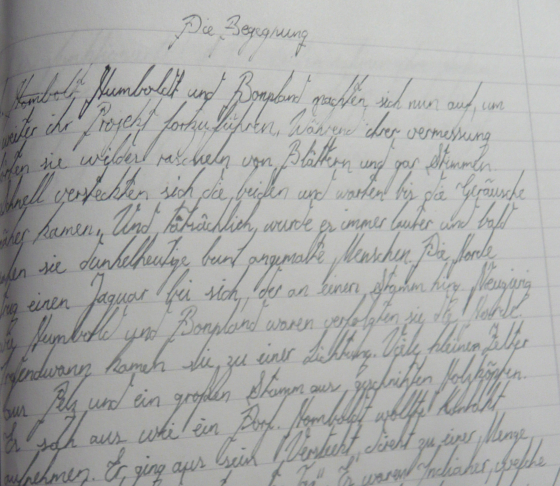 Die Begegnung
Humboldt Humboldt und Bonpland machten sich nun auf, um
weiter ihr Projekt fortzuführen. Während ihrer vermessung
sie wilder rascheln von Blättern und gar Stimmen
schnell versteckten sich die beiden und warten bis die Geräusche
näher kamen. Und tatsächlich, wurde es immer lauter und bald
sie dunkelheutige bunt angemalte Menschen. Die Horde
einen Jaguar bei sich, der an einen Stamm hing. Neugierig
Humbold und Bonpland waren verfolgten sie die Horde
irgendwann kamen sie zu einer Lichtung. Viele kleinen Zelter
aus Pelz und ein großen Stamm aus geschnitzten Holzköpfen.
Es sah aus wie ein Dorf. Homboldt wollte Kontakt
aufnehmen. Er ging aus sein Versteck, direkt zu einer Menge
Es waren Indianer, welche